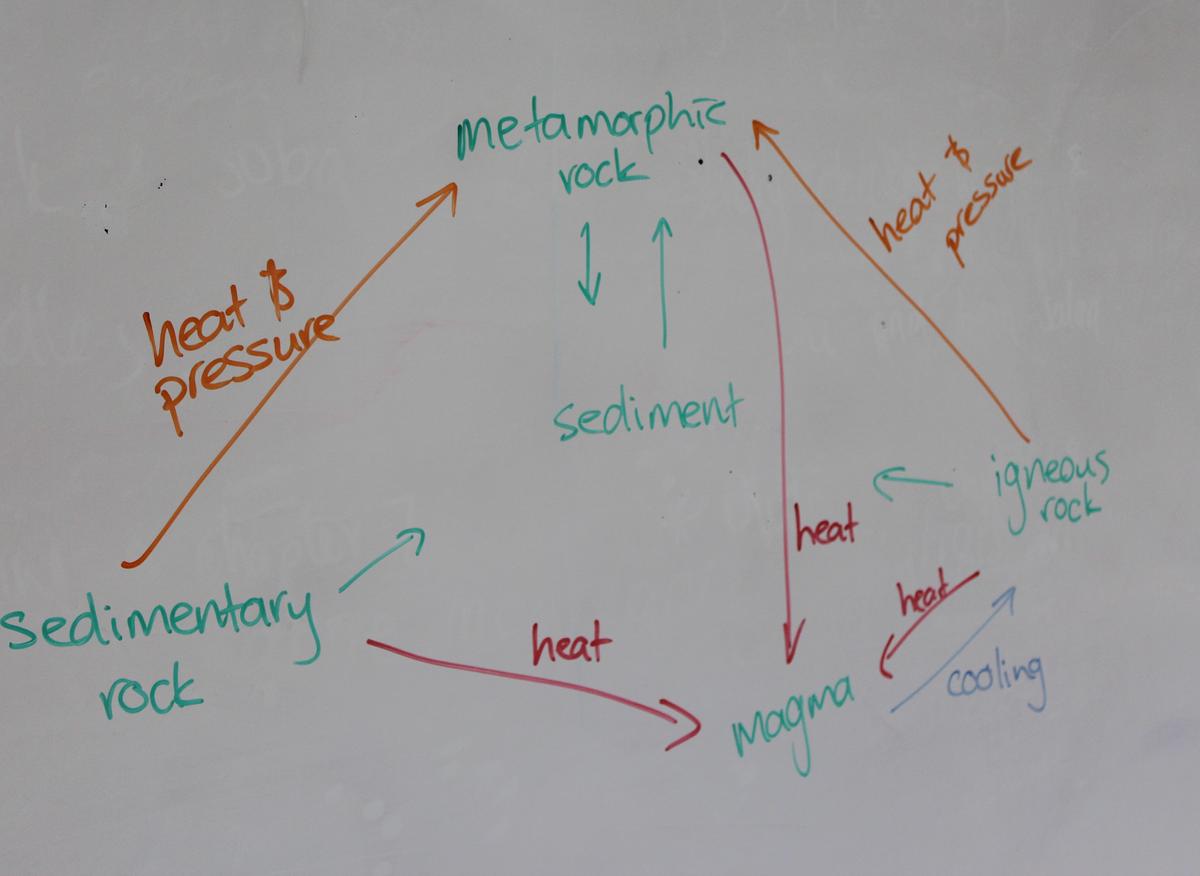 metamorphic
rock
heat &
pressure
heat &
pressure
sediment
igneous
rock
heat
sedimentary
rock
heat
heat
cooling
magma